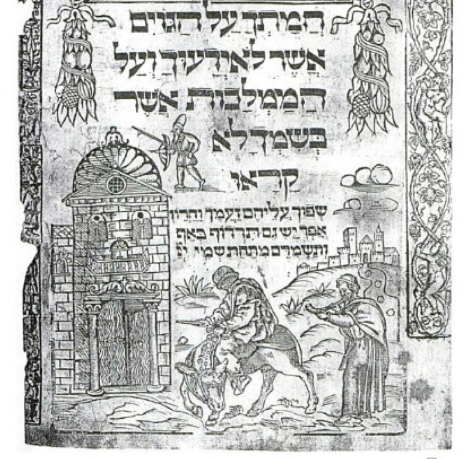 חמתך על הגוים
אשר לא ידעוך ועל
הממלכות אשר
בשמך לא
קראו
שפוך עליהם זעמך וחרון
אפך ישיגם תרדוף באף
ותשמידם מתחת שמי